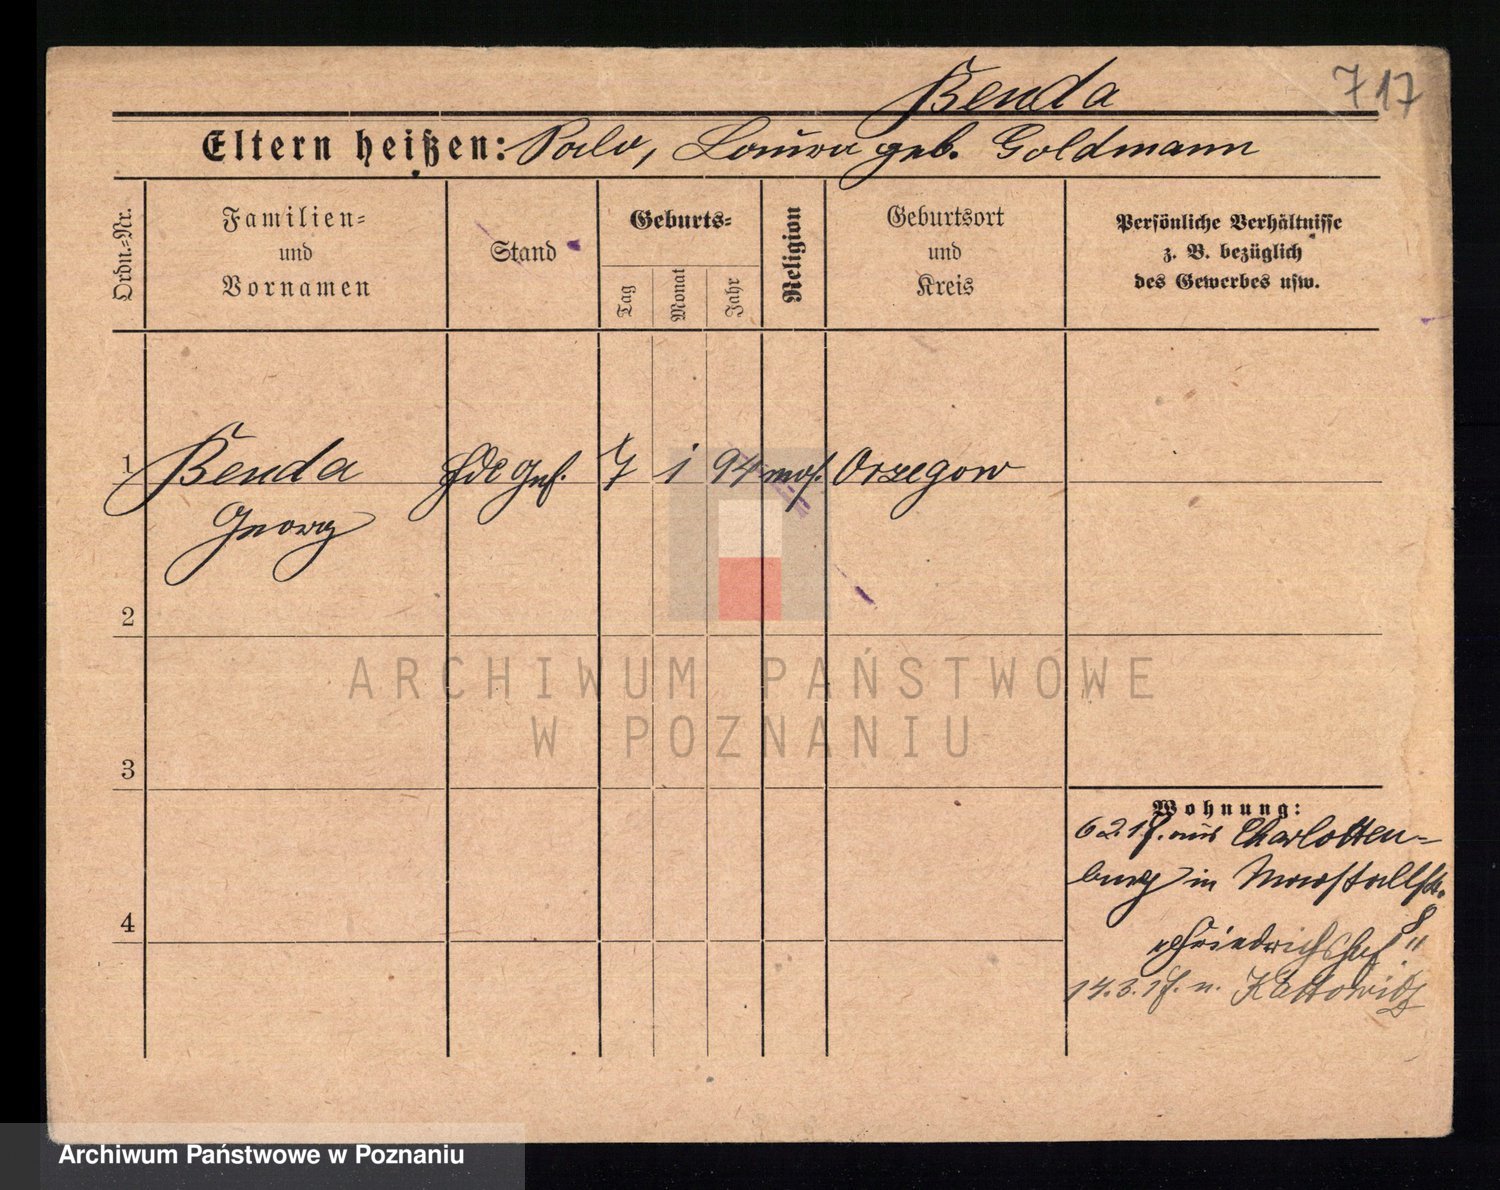 Benda
717
Eltern heißen: Salo, Laura geb. Goldmann
Ordn.-Nr.
Familien-
und
Vornamen
Stand
Geburts-
Tag
Monat
Jahr
Religion
Geburtsort
und
Kreis
Persönliche Verhältnisse
z. B. bezüglich
des Gewerbes usw.
1 Benda 7 1 94 mos. Orzegow
Georg
2
3
4
Wohnung:
aus Charlotten-
burg in Marstallstr.
8
Friedrichshof "
14.3. n. Kattowitz
ARCHIWUM PAŃSTWOWE
W POZNANIU
Archiwum Państwowe w Poznaniu